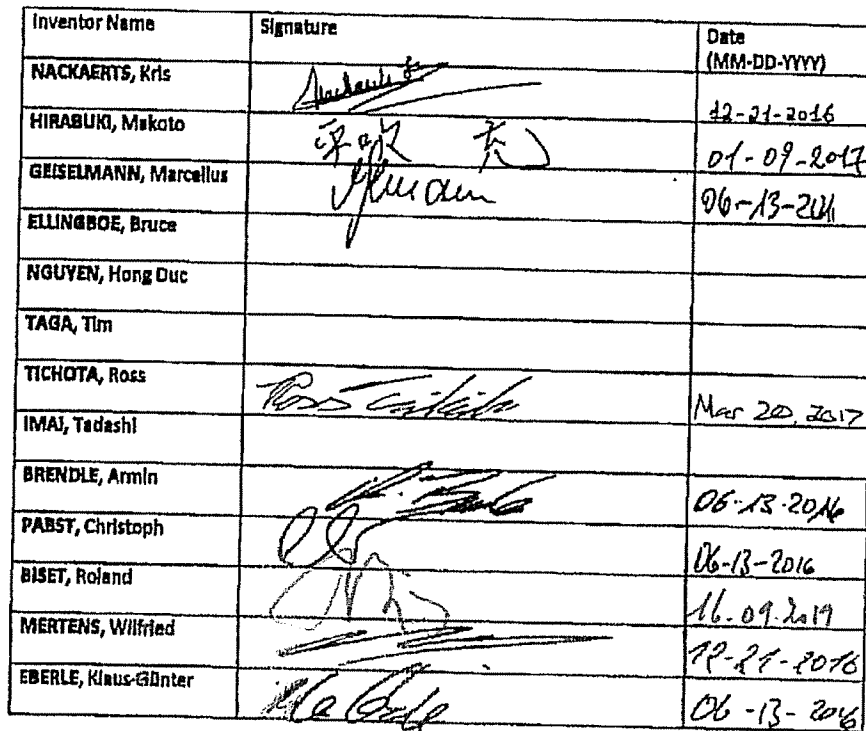 Inventor Name Signature Date
(MM-DD-YYYY)
NACKAERTS, Kris 12-21-2016
HIRABUKI, Makoto 01-09-2017
GEISELMANN, Marcellus 06-13-
ELLINGBOE, Bruce
NGUYEN, Hong Duc
TAGA, Tim
TICHOTA, Ross Ross Tichota Mar 20, 2017
IMAI, Tadashi
BRENDLE, Armin 06-13-2016
PABST, Christoph 06-13-2016
BISET, Roland 16.09.2019
MERTENS, Wilfried 12-21-2016
EBERLE, Klaus-Günter 06-13-2016